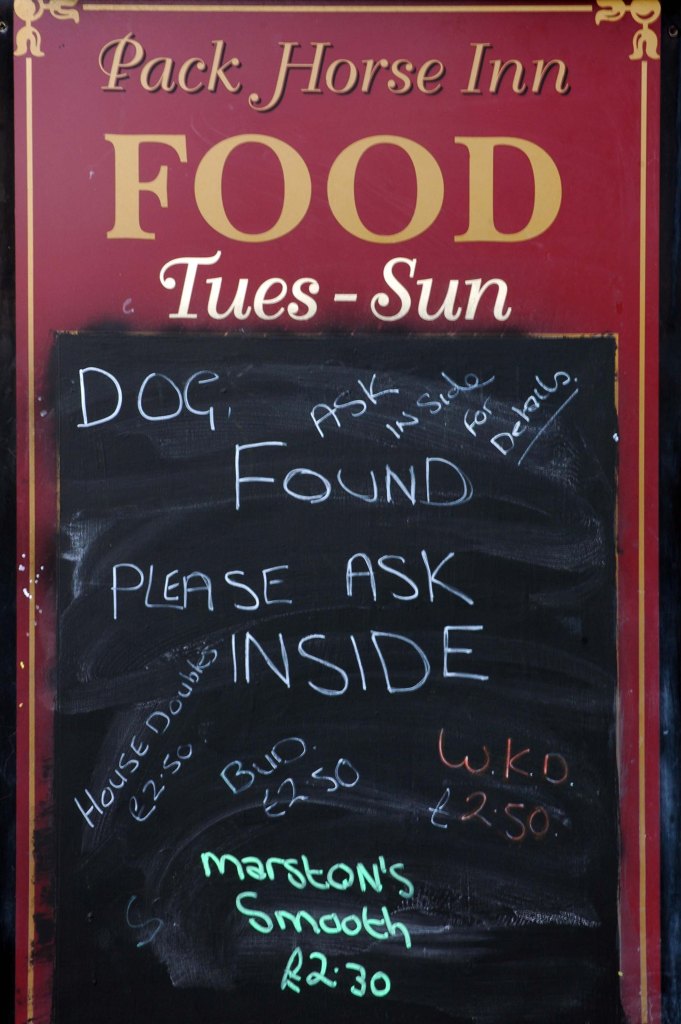 Pack Horse Inn
FOOD
Tues - Sun
DOG.
ASK
INSide
For
Details.
FOUND
PLEASE ASK
INSIDE
HOUSE DOUBLES
£2.50
BUD.
£2.50
W.K.D.
£2.50
marston's
Smooth
£2.30